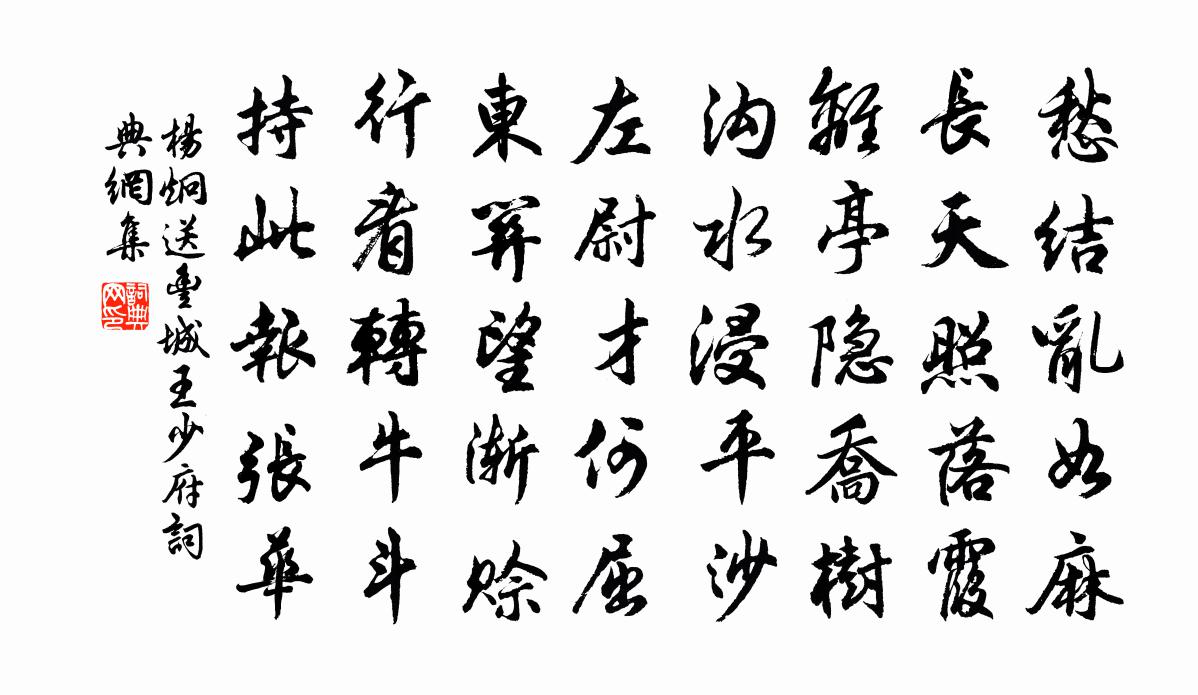 愁结亂如麻
長天照落霞
離亭隐喬樹
沟水浸平沙
左尉才何屈
東關望漸賒
行看轉牛斗
持此報張華
楊炯送豐城王少府詞
典網集
詞典
网印